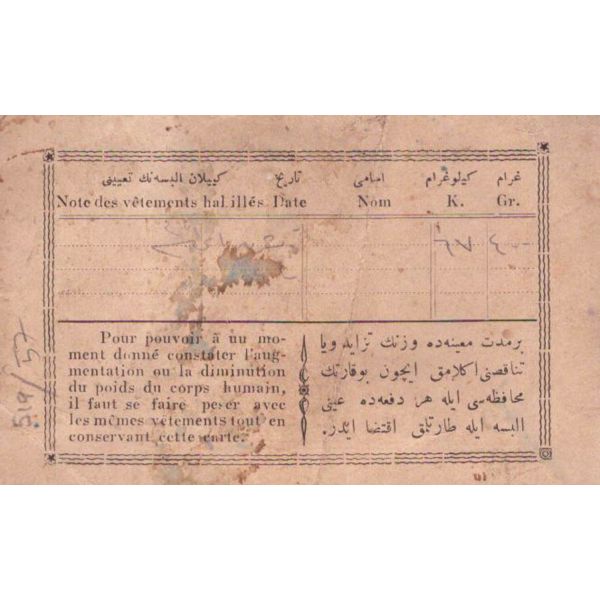 غرام كيلوغرام اسامی تاريخ كييلان البسه‌نك تعيينی
Note des vêtements habillés Date Nom K. Gr.
٦٧ ٤٠٠
Pour pouvoir à un mo-
ment donné constater l'aug-
mentation ou la diminution
du poids du corps humain,
il faut se faire peser avec
les mêmes vêtements tout en
conservant cette carte.
برمدت معينه‌ده وزنك تزايد ويا
تناقصنی اكلامق ايچون بوقارتك
محافظه‌سی ايله هر دفعه‌ده عينی
البسه ايله طارتلمق اقتضا ايدر.
519/57